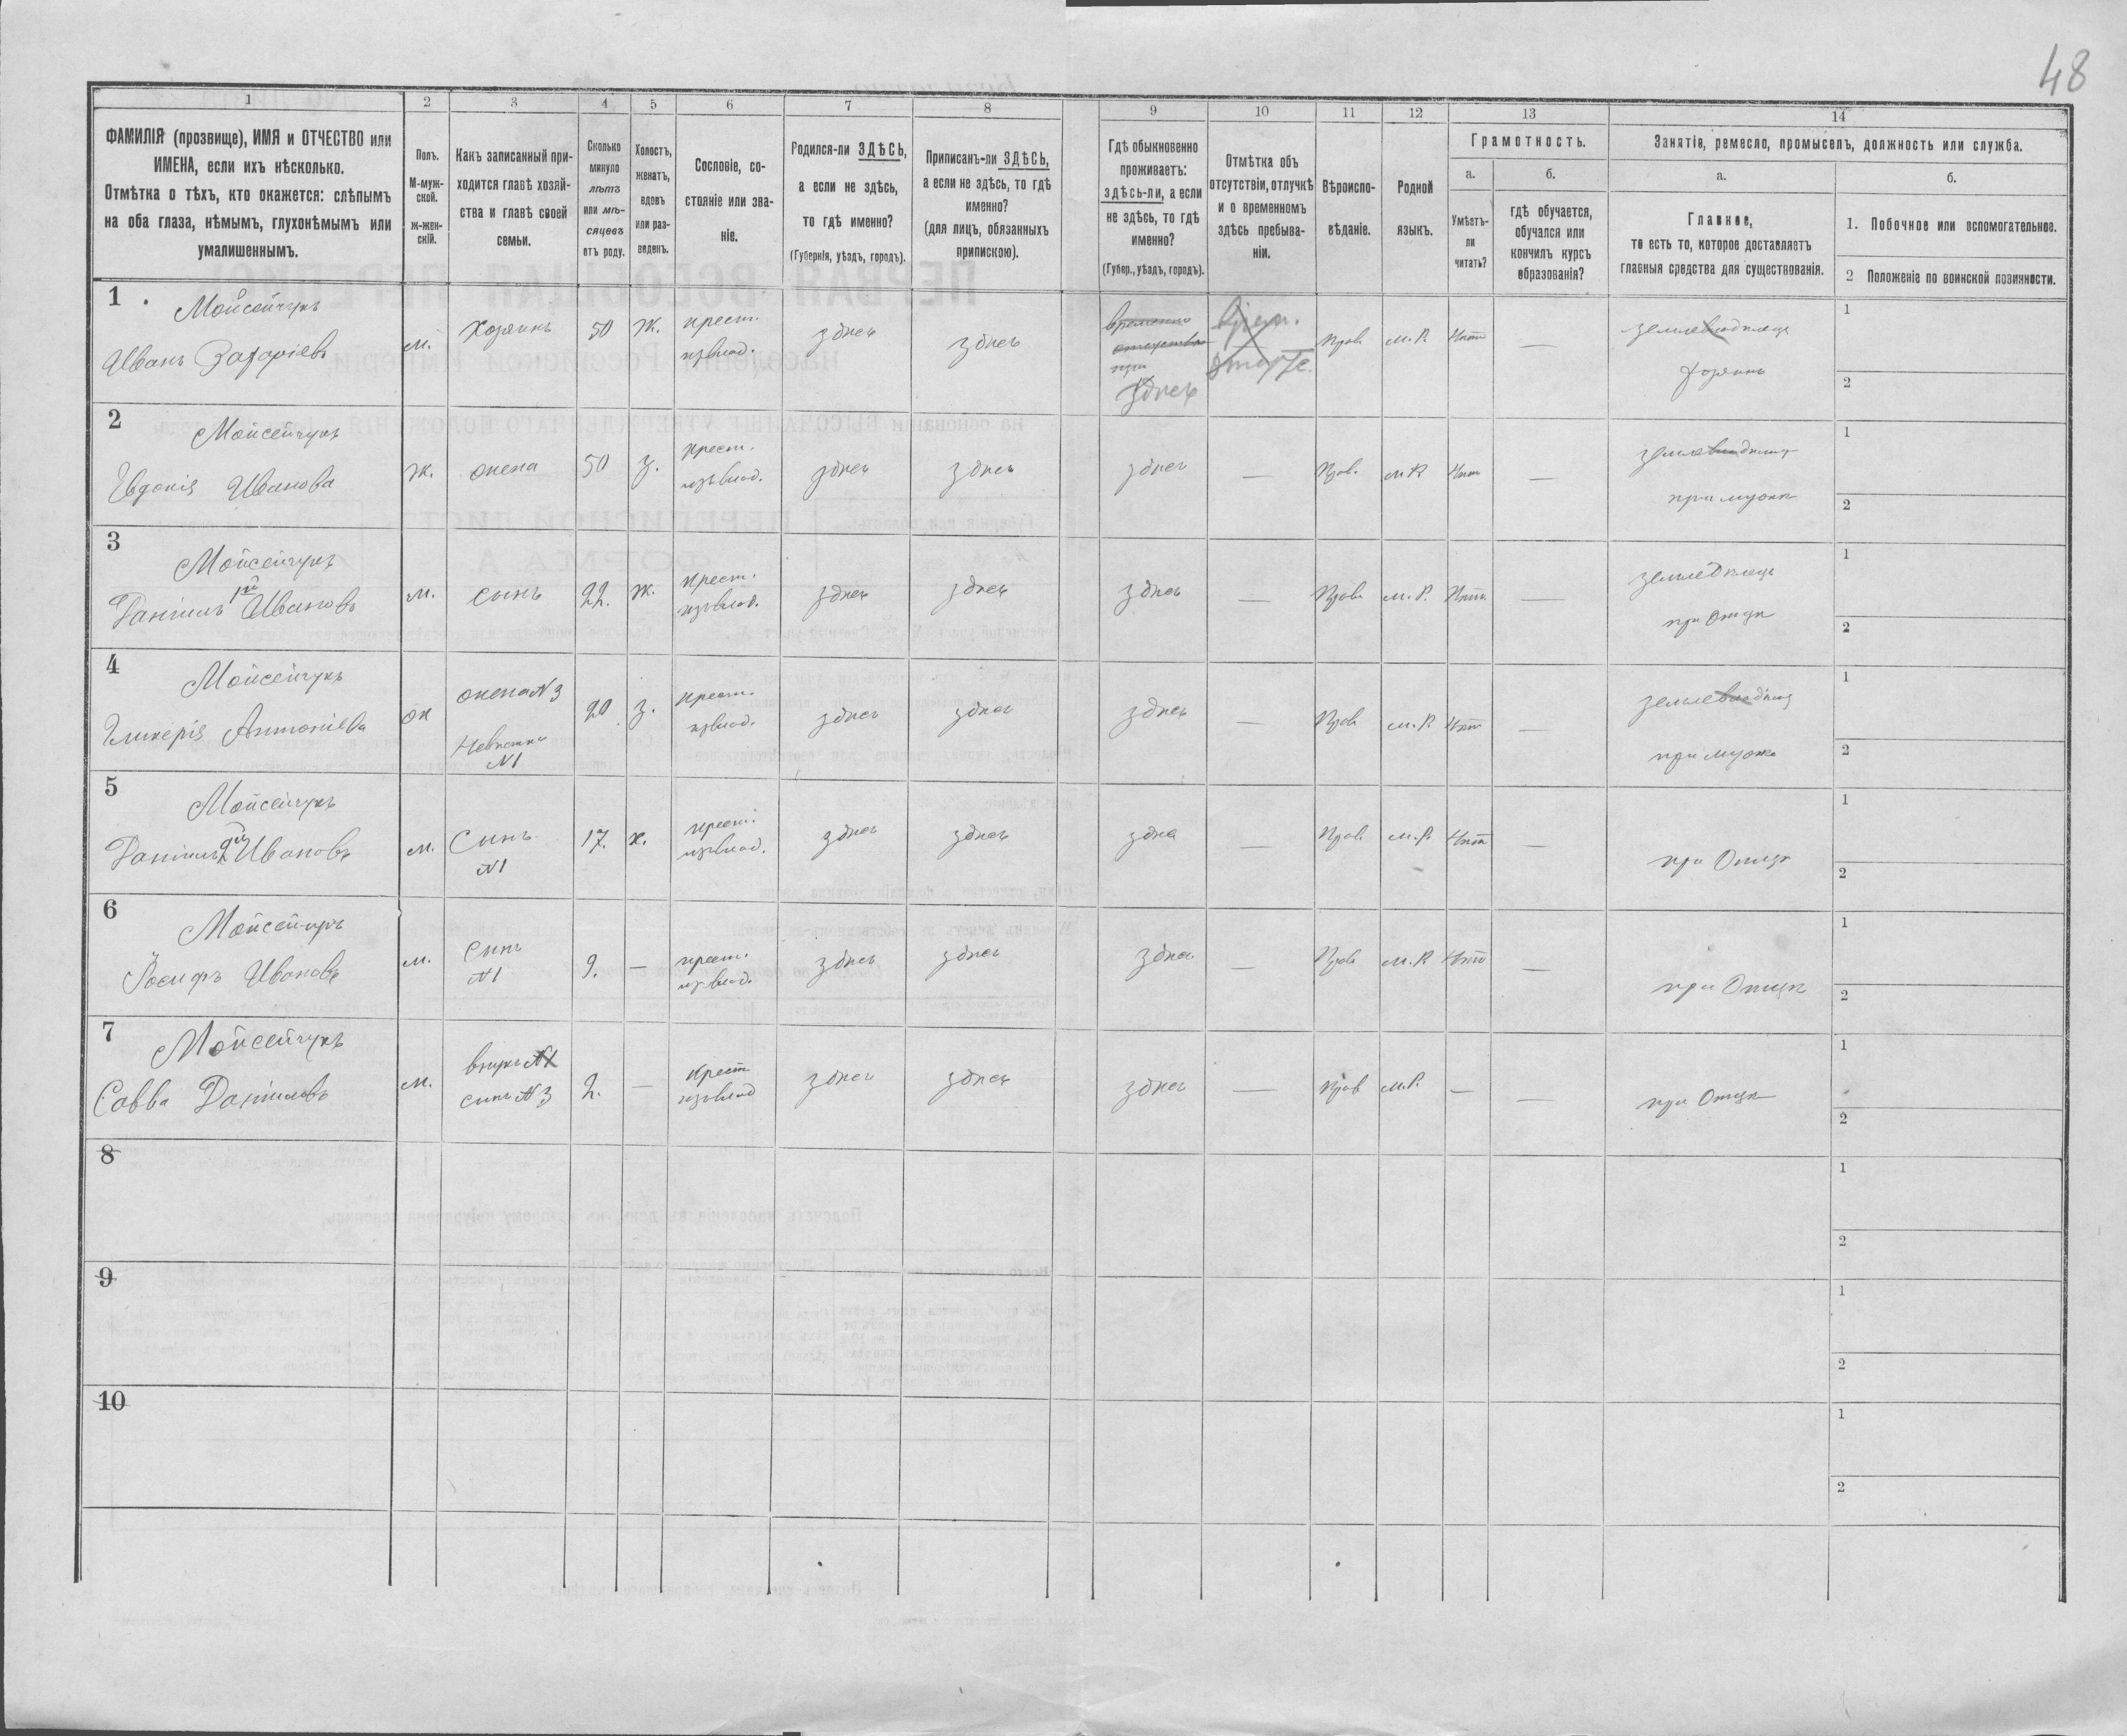 48
1 2 3 4 5 6 7 8 9 10 11 12 13 14
ФАМИЛІЯ (прозвище), ИМЯ и ОТЧЕСТВО или ИМЕНА, если ихъ нѣсколько.
Отмѣтка о тѣхъ, кто окажется: слѣпымъ на оба глаза, нѣмымъ, глухонѣмымъ или умалишеннымъ.
Полъ.
М-муж-
ской.
ж-жен-
скій.
Какъ записанный при-
ходится главѣ хозяй-
ства и главѣ своей
семьи.
Сколько
минуло
лѣтъ
или мѣ-
сяцевъ
отъ роду.
Холостъ,
женатъ,
вдовъ
или раз-
веденъ.
Сословіе, со-
стояніе или зва-
ніе.
Родился-ли ЗДѢСЬ,
а если не здѣсь,
то гдѣ именно?
(Губернія, уѣздъ, городъ).
Приписанъ-ли ЗДѢСЬ,
а если не здѣсь, то гдѣ
именно?
(для лицъ, обязанныхъ
припискою).
Гдѣ обыкновенно
проживаетъ:
здѣсь-ли, а если
не здѣсь, то гдѣ
именно?
(Губер., уѣздъ, городъ).
Отмѣтка объ
отсутствіи, отлучкѣ
и о временномъ
здѣсь пребыва-
ніи.
Вѣроиспо-
вѣданіе.
Родной
языкъ.
Грамотность.
а.
Умѣетъ-
ли
читать?
б.
гдѣ обучается,
обучался или
кончилъ курсъ
образованія?
Занятіе, ремесло, промыселъ, должность или служба.
а.
Главное,
то есть то, которое доставляетъ
главныя средства для существованія.
б.
1. Побочное или вспомогательное.
2 Положеніе по воинской повинности.
1 Мойсейчукъ
Иванъ Захаріевъ
м. Хозяинъ 50 ж. крест. здѣсь здѣсь
временно
здѣсь
Прав. м. Р. Нѣтъ —
хозяинъ
1
2
2 Мойсейчукъ
Евдокія Иванова
ж. жена 50 з. крест. здѣсь здѣсь здѣсь — Прав. м. Р Нѣтъ —
при мужѣ
1
2
3 Мойсейчукъ
Даніилъ 1й Ивановъ
м. сынъ 22. ж. крест. здѣсь здѣсь здѣсь — Прав. м. Р. Нѣтъ —
землѣдѣлецъ
при Отцѣ
1
2
4 Мойсейчукъ
Гликерія Антоніева
ж жена N 3
Невѣстка
N 1
20 з. крест. здѣсь здѣсь здѣсь — Прав м. Р Нѣтъ —
при мужѣ
1
2
5 Мойсейчукъ
Даніилъ 2й Ивановъ
м. Сынъ
N 1
17. х. крест. здѣсь здѣсь здѣсь — Прав. м. Р. Нѣтъ —
при Отцѣ
1
2
6 Мойсейчукъ
Іосифъ Ивановъ
м. Сынъ
N 1
9. — крест. здѣсь здѣсь здѣсь — Прав м. Р Нѣтъ —
при Отцѣ
1
2
7 Мойсейчукъ
Савва Даніиловъ
м. внукъ N 1
сынъ N 3
2. — Крест здѣсь здѣсь здѣсь — Прав м. Р. — —
при Отцѣ
1
2
8
1
2
9
1
2
10
1
2